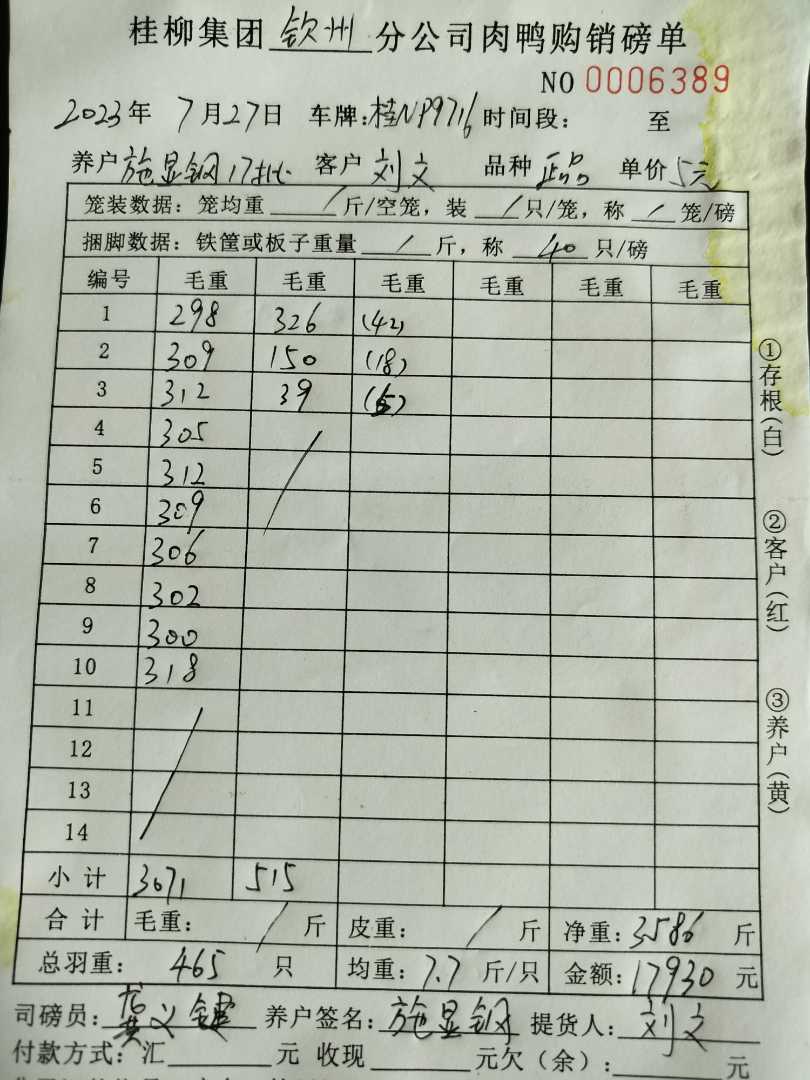 桂柳集团 钦州 分公司肉鸭购销磅单
NO 0006389
2023年 7月27日 车牌:桂NP9716 时间段: 至
养户 施显钢 17批 客户 刘文 品种 正品 单价 5元
笼装数据: 笼均重 / 斤/空笼, 装 / 只/笼, 称 / 笼/磅
捆脚数据: 铁筐或板子重量 / 斤, 称 40 只/磅
编号 毛重 毛重 毛重 毛重 毛重 毛重
1 298 326 (42)
2 309 150 (18)
3 312 39 (5)
4 305
5 312
6 309
7 306
8 302
9 300
10 318
11
12
13
14
小计 3071 515
合计 毛重: / 斤 皮重: / 斤 净重: 3586 斤
总羽重: 465 只 均重: 7.7 斤/只 金额: 17930 元
司磅员: 义键 养户签名: 施显钢 提货人: 刘文
付款方式: 汇 元 收现 元欠(余):
①存根(白)
②客户(红)
③养户(黄)